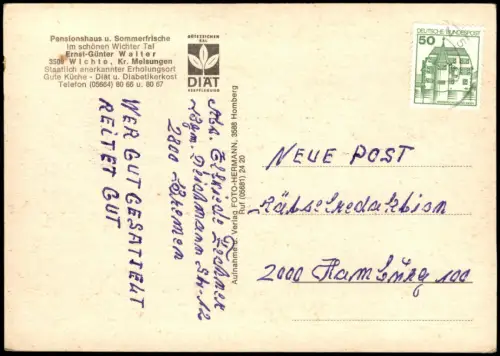 Pensionshaus u. Sommerfrische
im schönen Wichter Tal
Ernst-Günter Walter
3509 Wichte, Kr. Melsungen
Staatlich anerkannter Erholungsort
Gute Küche - Diät u. Diabetikerkost
Telefon (05664) 80 66 u. 80 67
GÜTEZEICHEN
RAL
DIÄT
VERPFLEGUNG
WER GUT GESATTELT
REITET GUT
Abs. Elfriede
Bgm. Deichmann Str. 12
2800 Bremen
Aufnahme u. Verlag FOTO-HERMANN, 3588 Homberg
Ruf (05681) 24 20
DEUTSCHE BUNDESPOST
50
NEUE POST
Rätselredaktion
2000 Hamburg 100